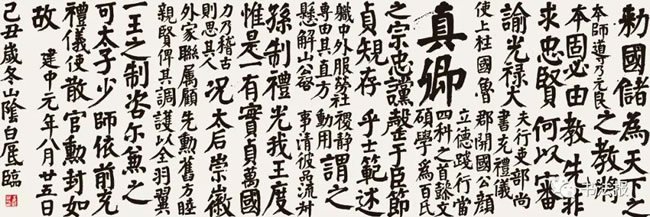 勅國儲為天下之
本師導乃元良之教將以
本固必由教先非
求忠賢何以審
諭光祿大
夫行吏部尚
書充禮儀
使上柱國魯
郡開國公顏
真卿
立德踐行當
四科之首懿文
碩學為百氏
之宗忠讜罄于臣節
貞規存乎士範述
職中外服勞社稷靜
專由其直方動用謂之
懸解山公啓事清彼品流叔
孫制禮光我王度
惟是一有實貞萬國
力乃稽古
則思其人況太后崇徽
外家聯屬顧先勳舊方睦
親賢俾其調護以全羽翼
一王之制咨尔兼之
可太子少師依前充
禮儀使散官勳封如
故 建中元年八月廿五日
己丑歲冬山陰白厓臨
书法报